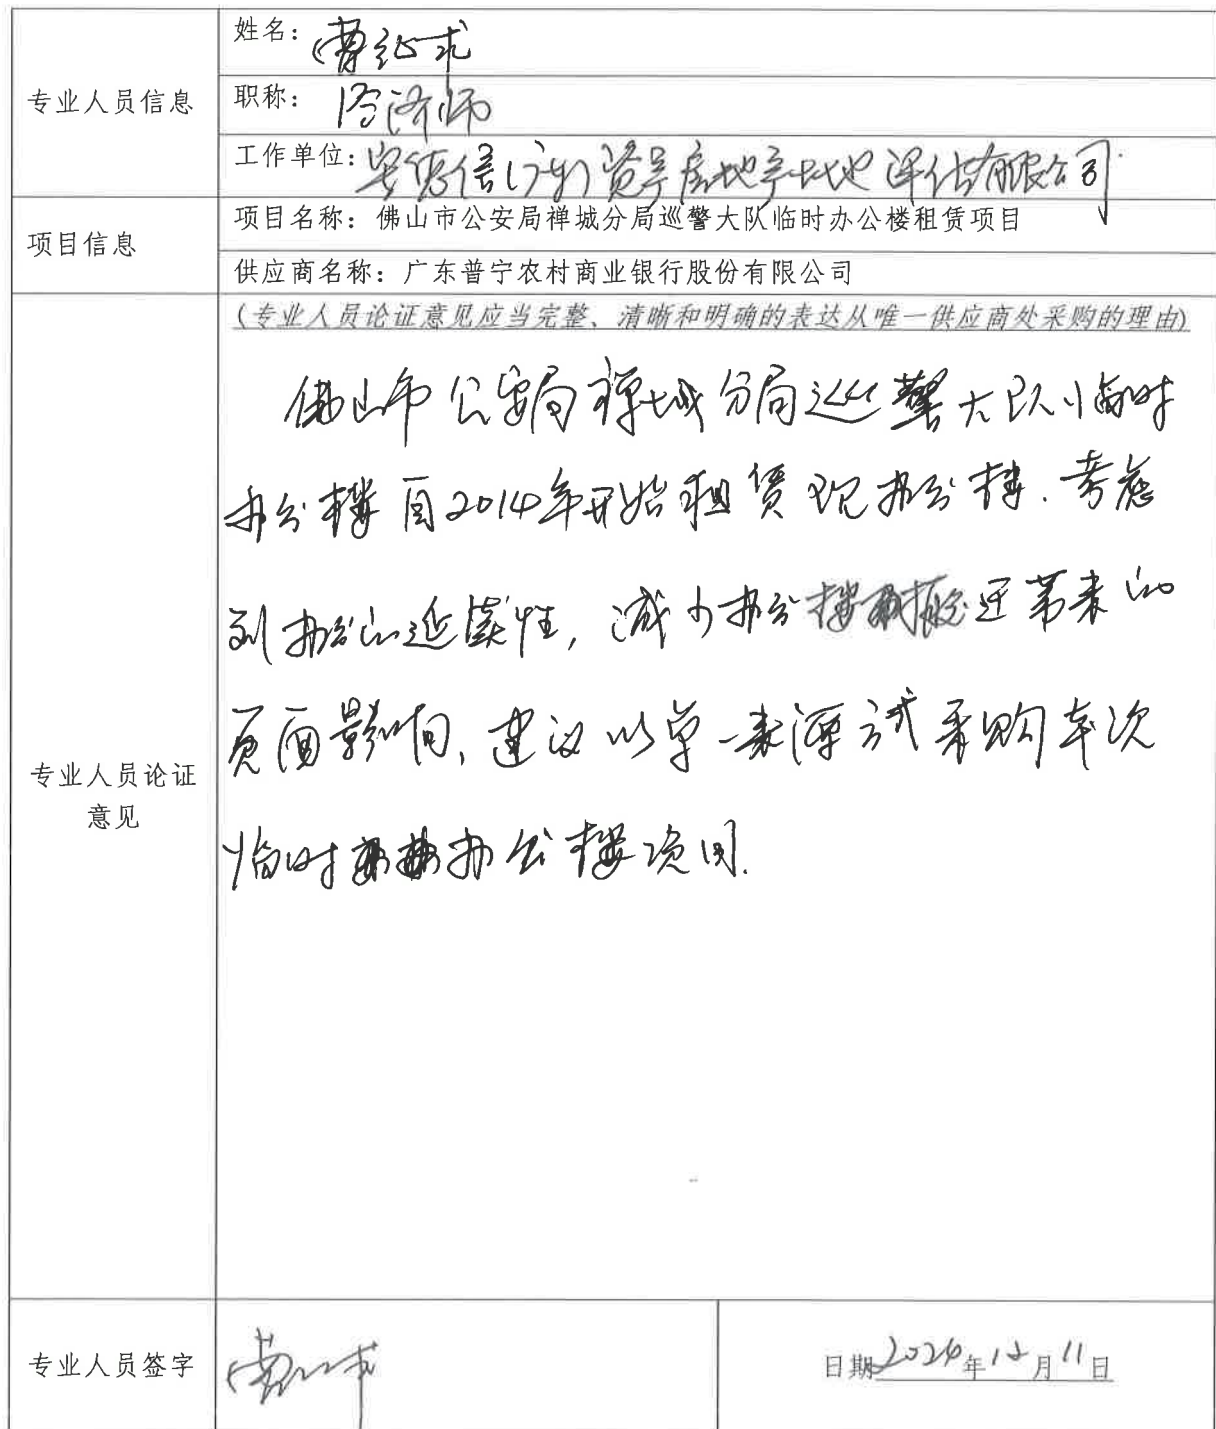 专业人员信息
姓名：曹纪求
职称：经济师
工作单位：安德信(广东)资产房地产土地评估有限公司
项目信息
项目名称：佛山市公安局禅城分局巡警大队临时办公楼租赁项目
供应商名称：广东普宁农村商业银行股份有限公司
专业人员论证
意见
(专业人员论证意见应当完整、清晰和明确的表达从唯一供应商处采购的理由)
佛山市公安局禅城分局巡警大队临时
办公楼自2014年开始租赁现办公楼.考虑
到办公的延续性,减少办公楼搬迁带来的
负面影响,建议以单一来源方式采购本次
临时办公楼项目.
专业人员签字
日期2024年12月11日